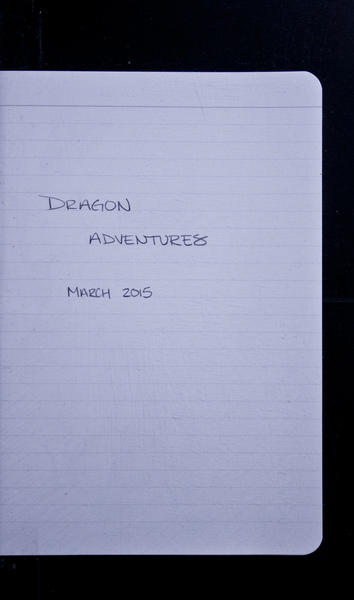 DRAGON
ADVENTURES
MARCH 2015